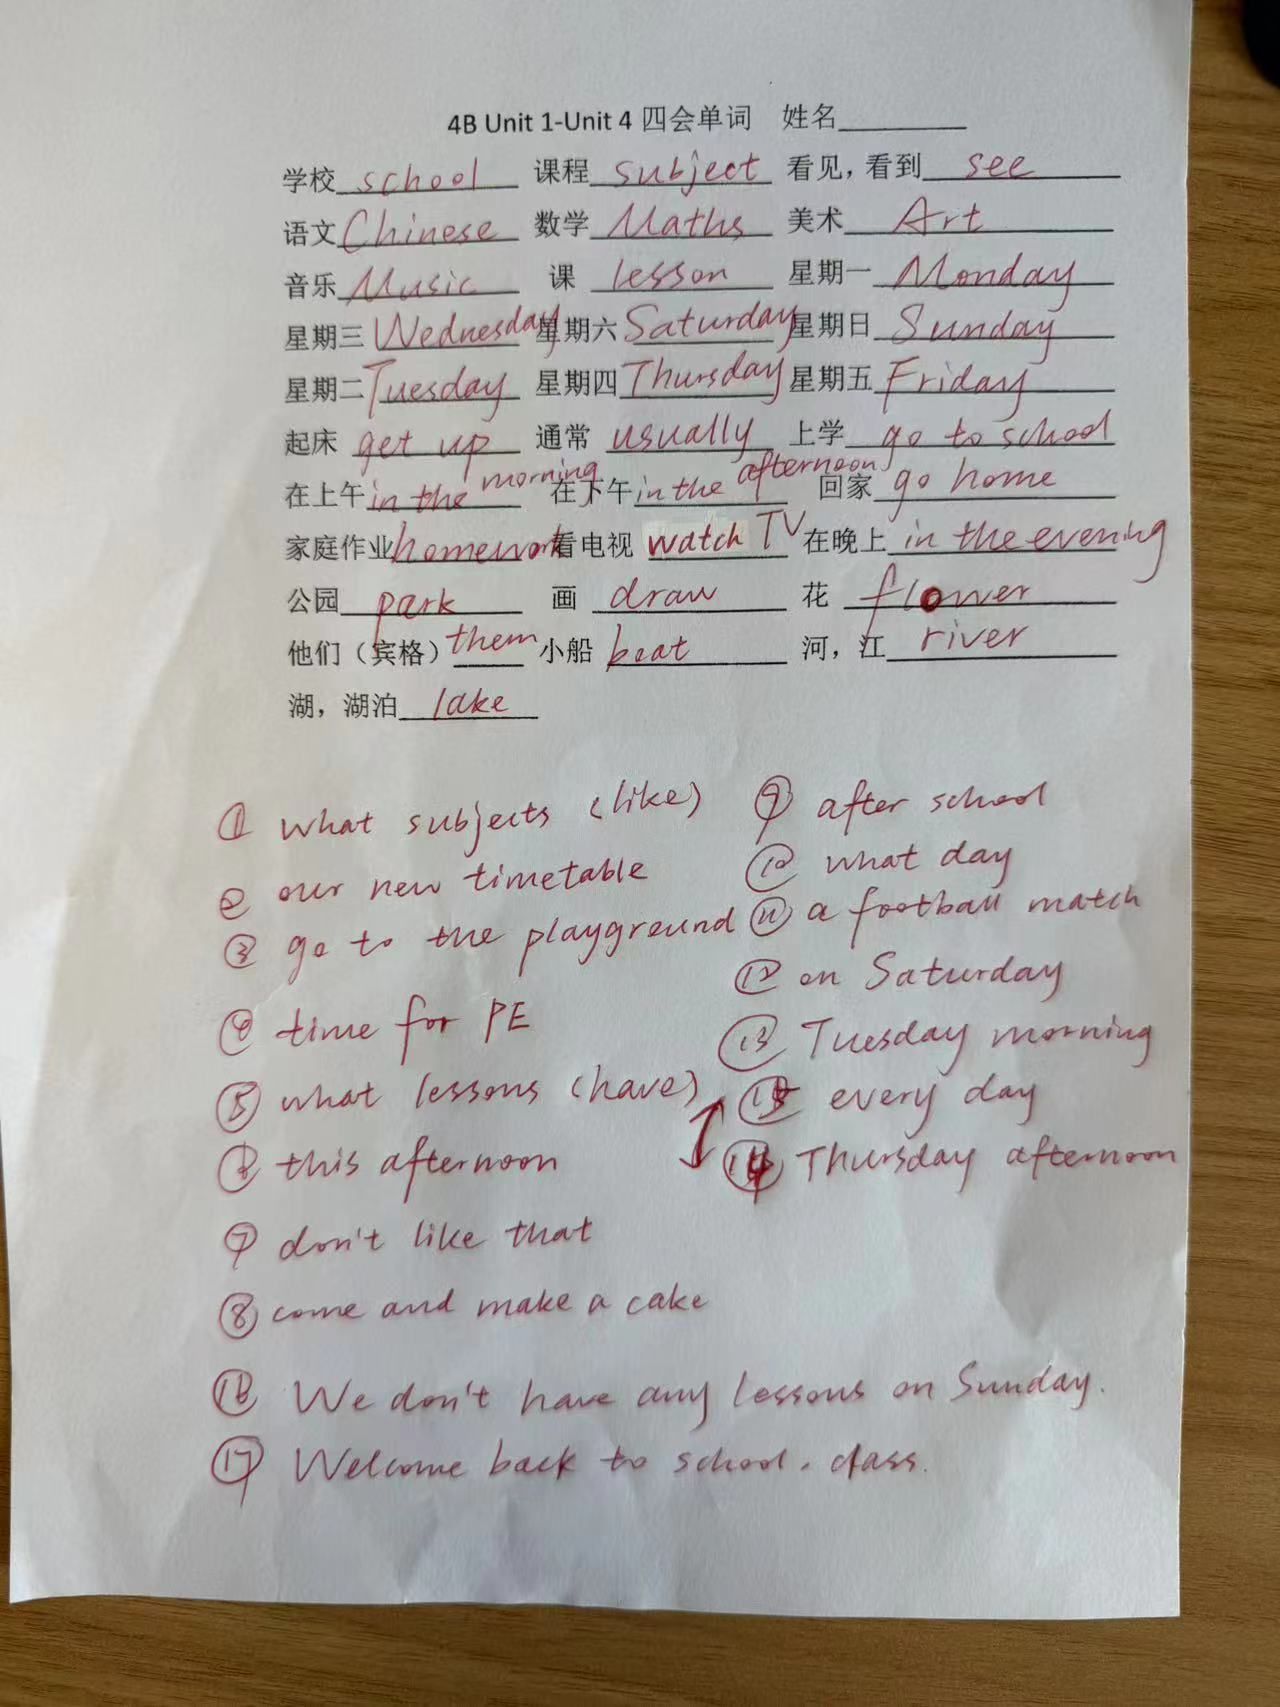 4B Unit 1-Unit 4 四会单词 姓名________
学校 school 课程 subject 看见，看到 see
语文 Chinese 数学 Maths 美术 Art
音乐 Music 课 lesson 星期一 Monday
星期三 Wednesday 星期六 Saturday 星期日 Sunday
星期二 Tuesday 星期四 Thursday 星期五 Friday
起床 get up 通常 usually 上学 go to school
在上午 in the morning 在下午 in the afternoon 回家 go home
家庭作业 homework 看电视 watch TV 在晚上 in the evening
公园 park 画 draw 花 flower
他们（宾格）them 小船 boat 河，江 river
湖，湖泊 lake
① what subjects (like)
② our new timetable
③ go to the playground
④ time for PE
⑤ what lessons (have)
⑥ this afternoon
⑦ don't like that
⑧ come and make a cake
⑨ after school
⑩ what day
⑪ a football match
⑫ on Saturday
⑬ Tuesday morning
⑮ every day
⑭ Thursday afternoon
⑯ We don't have any lessons on Sunday.
⑰ Welcome back to school, class.